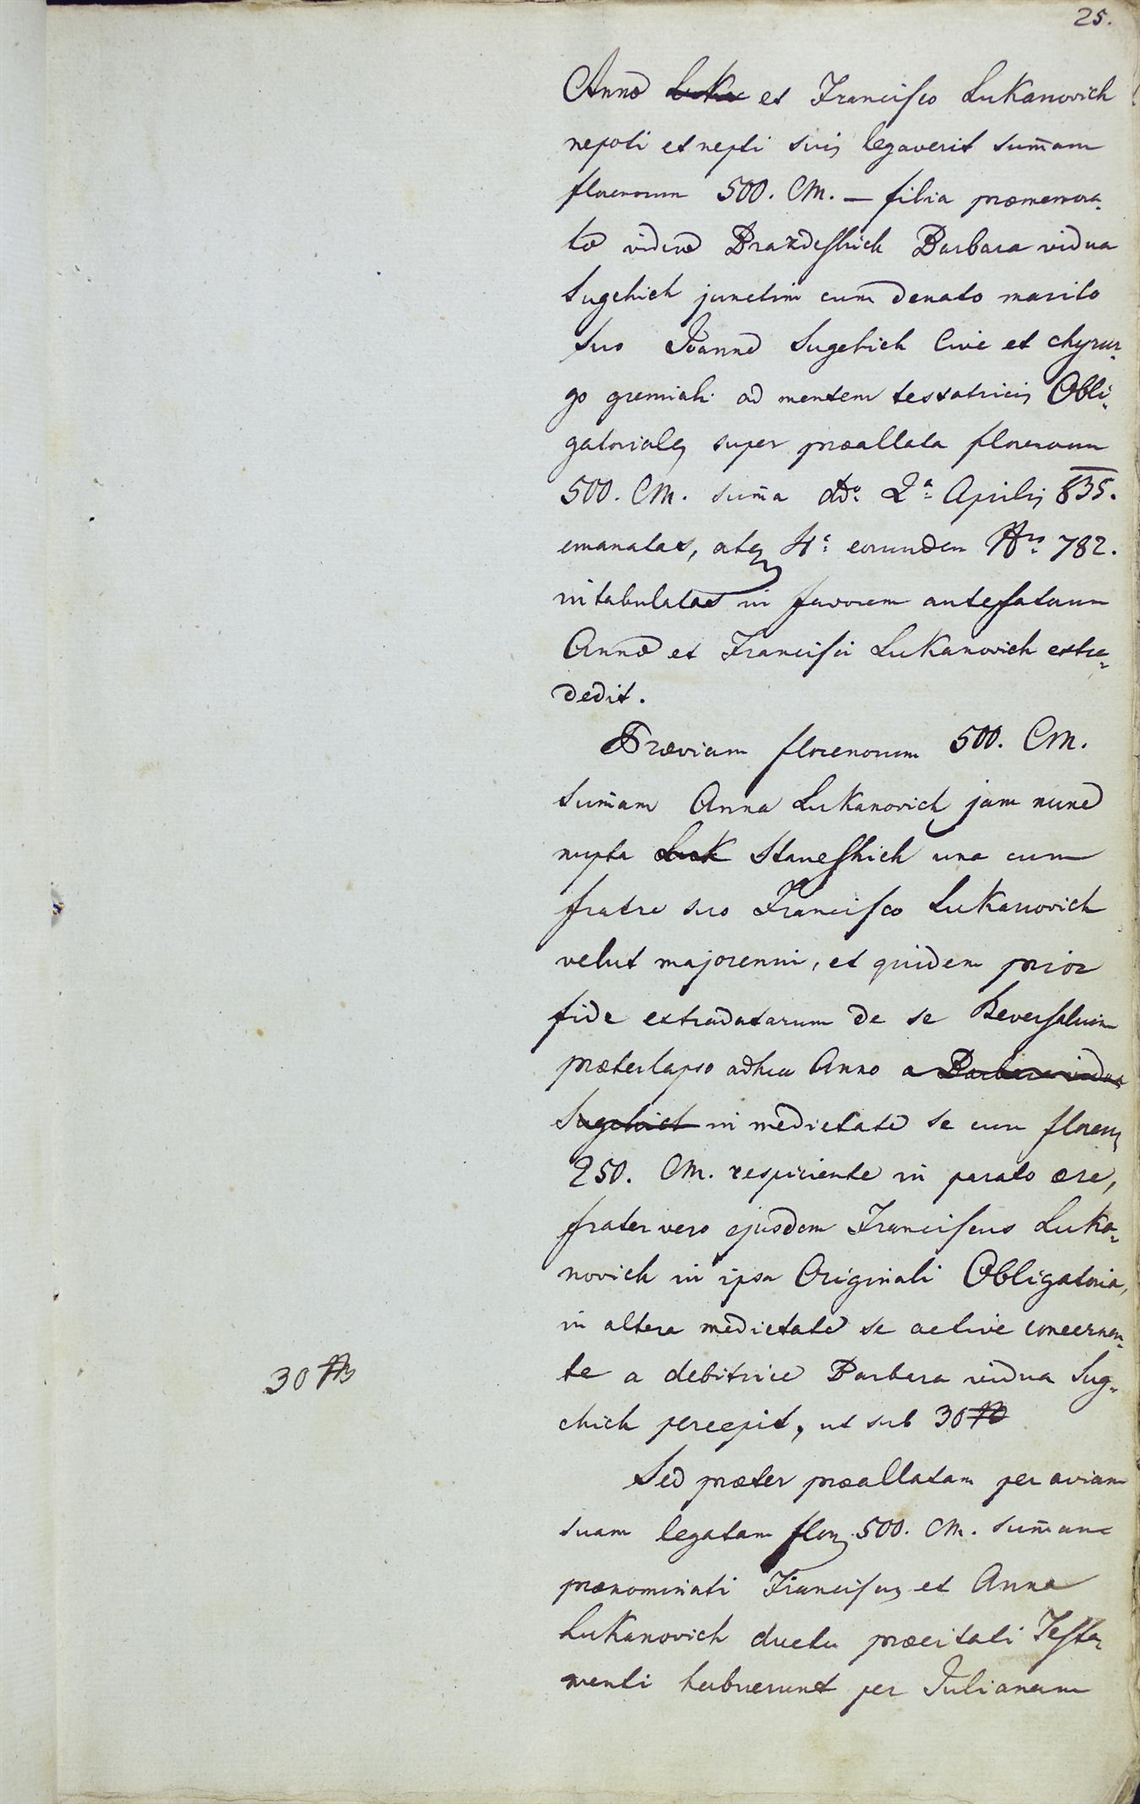 25.
Annæ Luka et Francisco Lukanovich
nepoti et nepti suis legaverit sum̄am
florenorum 500. CM. — filia præmemora-
tæ viduæ Brazdesskich Barbara vidua
Sugchich junctim cum denato marito
suo Joanne Sugchich Cive et chyrur-
go gremiali ad mentem testatricis Obli-
gatoriales super præallata florenorum
500. CM. sum̄a ddo 2a Aprilis 835.
emanatas, atq 4a eorundem Nro 782.
intabulatas in favorem antefatorum
Annæ et Francisci Lukanovich extra-
dedit.
Præviam florenorum 500. CM.
sum̄am Anna Lukanovich jam nunc
nupta Luk Staneshich una cum
fratre suo Francisco Lukanovich
velut majorenni, et quidem prior
fide extradatarum de se Reversalium
præterlapso adhuc Anno a Barbara vidua
Sugchich in medietate se cum florenis
250. CM. respiciente in parato ære,
frater vero ejusdem Franciscus Luka-
novich in ipsa Originali Obligatoria,
in altera medietate se active concernen-
te a debitrice Barbara vidua Sug-
chich percepit, ut sub 30
30
Sed præter præallatam per aviam
suam legatam flor. 500. CM. sum̄am
prænominati Franciscus et Anna
Lukanovich ductu præcitati Testa-
menti habuerunt per Julianam